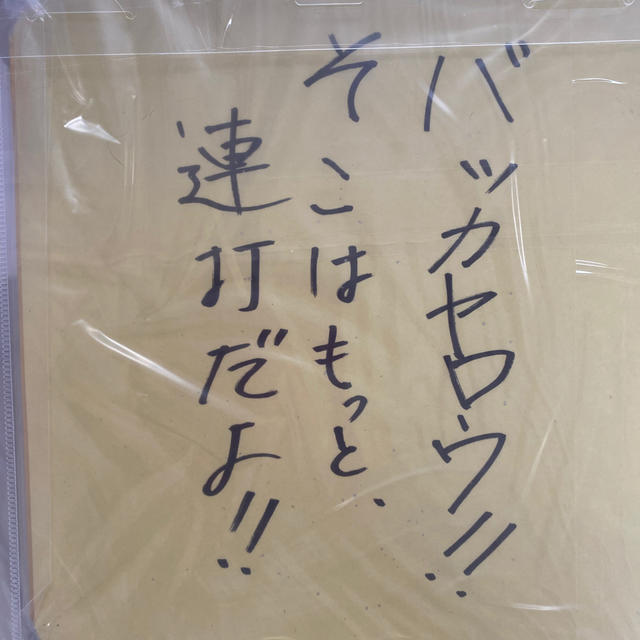 バッカヤロウ!!
そこはもっと、
連打だよ!!